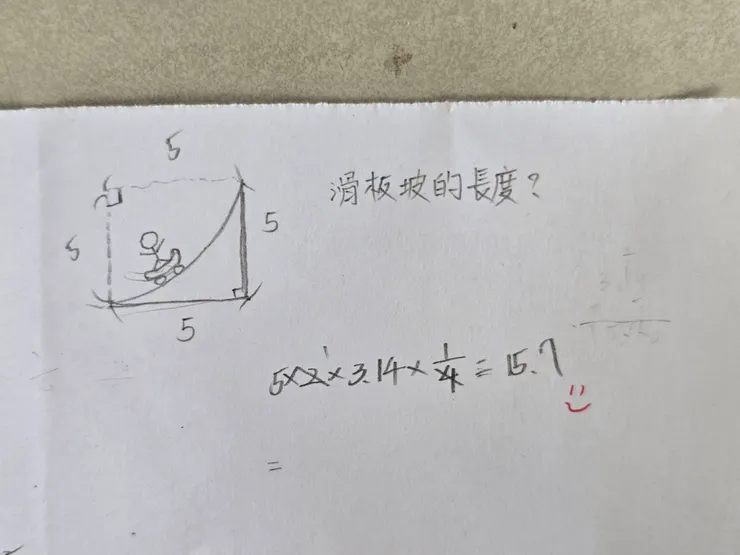 5
滑板坡的長度？
5
5
5
5×2×3.14×1/4=15.7
=